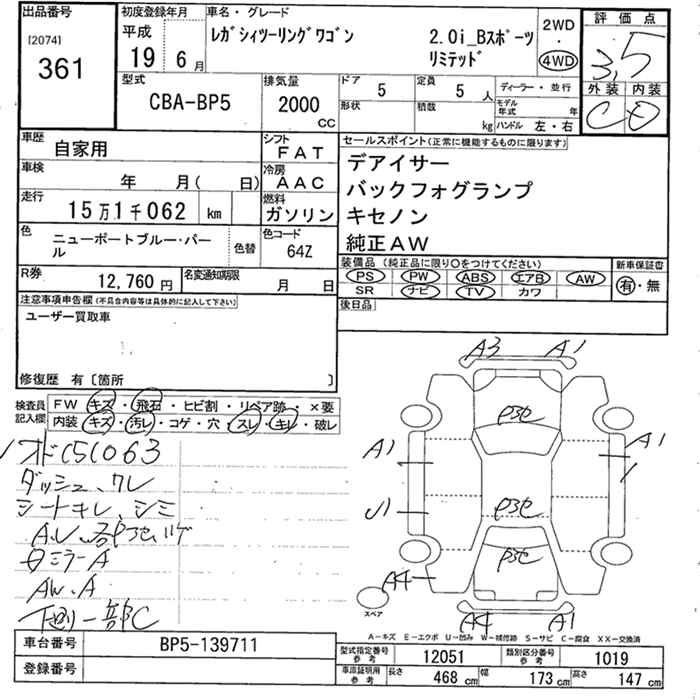 出品番号
[2074]
361
初度登録年月
平成
19 6月
車名・グレード
レガシィツーリングワゴン 2.0i_Bスポーツ
リミテッド
2WD
・
4WD
評価点
3.5
外装 内装
C D
型式
CBA-BP5
排気量
2000
CC
ドア 5
形状
定員 5 人
積載 kg
ディーラー・並行
モデル年式 年
ハンドル 左・右
車歴
自家用
シフト
FAT
車検
年 月( 日)
冷房
AAC
走行
15万1千062 km
燃料
ガソリン
色
ニューポートブルー・パール
色替
色コード
64Z
R券
12,760円
名変通知期限
月 日
セールスポイント(正常に機能するものに限ります)
デアイサー
バックフォグランプ
キセノン
純正AW
装備品(純正品に限り○をつけてください)
PS PW ABS エアB AW
SR ナビ TV カワ
新車保証書
有・無
後日品
注意事項申告欄(不具合内容等は具体的に記入して下さい)
ユーザー買取車
修復歴 有〔箇所 〕
検査員
記入欄
FW キズ・飛石・ヒビ割・リペア跡・×要
内装 キズ・汚レ・コゲ・穴・スレ・キレ・破レ
ダッシュ、ワレ
シートキレ、シミ
AW.A
下廻り一部C
A3 A1
A1
A1
A4
A4 A1
スペア
A-キズ E-エクボ U-凹み W-補修跡 S-サビ C-腐食 XX-交換済
車台番号
BP5-139711
登録番号
型式指定番号
参考
12051
類別区分番号
参考
1019
車庫証明用
参考
長さ 468 cm
幅 173 cm
高さ 147 cm